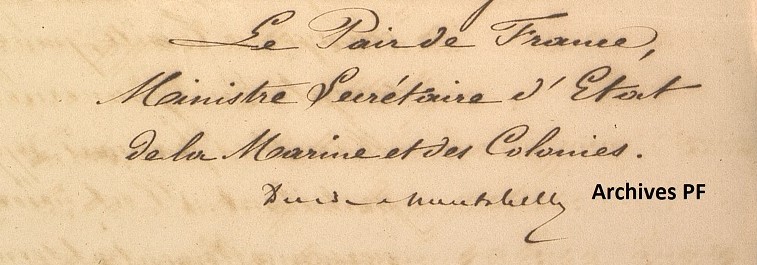 Le Pair de France,
Ministre Secrétaire d'Etat
de la Marine et des Colonies.
Archives PF